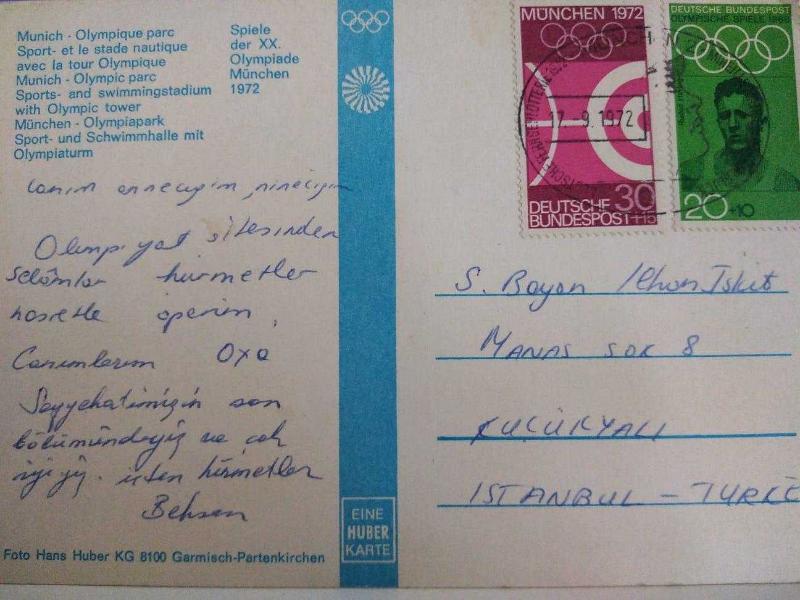 Munich - Olympique parc
Sport- et le stade nautique
avec la tour Olympique
Munich - Olympic parc
Sports- and swimmingstadium
with Olympic tower
München - Olympiapark
Sport- und Schwimmhalle mit
Olympiaturm
Spiele
der XX.
Olympiade
München
1972
Canım annecugim, ninecigim
Olimpiyat sitesinden
selâmlar hürmetler
hasretle öperim,
Canımlarım OXO
Seyyehatimizin son
bölümündeyiz ve çok
iyiyiz. hürmetler
Behsan
Foto Hans Huber KG 8100 Garmisch-Partenkirchen
EINE
HUBER
KARTE
MÜNCHEN 1972
17.-9.1972
DEUTSCHE 30
BUNDESPOST +15
DEUTSCHE BUNDESPOST
OLYMPISCHE SPIELE 1968
20 +10
S. Bayan Ilhan Iskit
MANAS SOK 8
KÜÇÜKYALI
ISTANBUL - TURKE